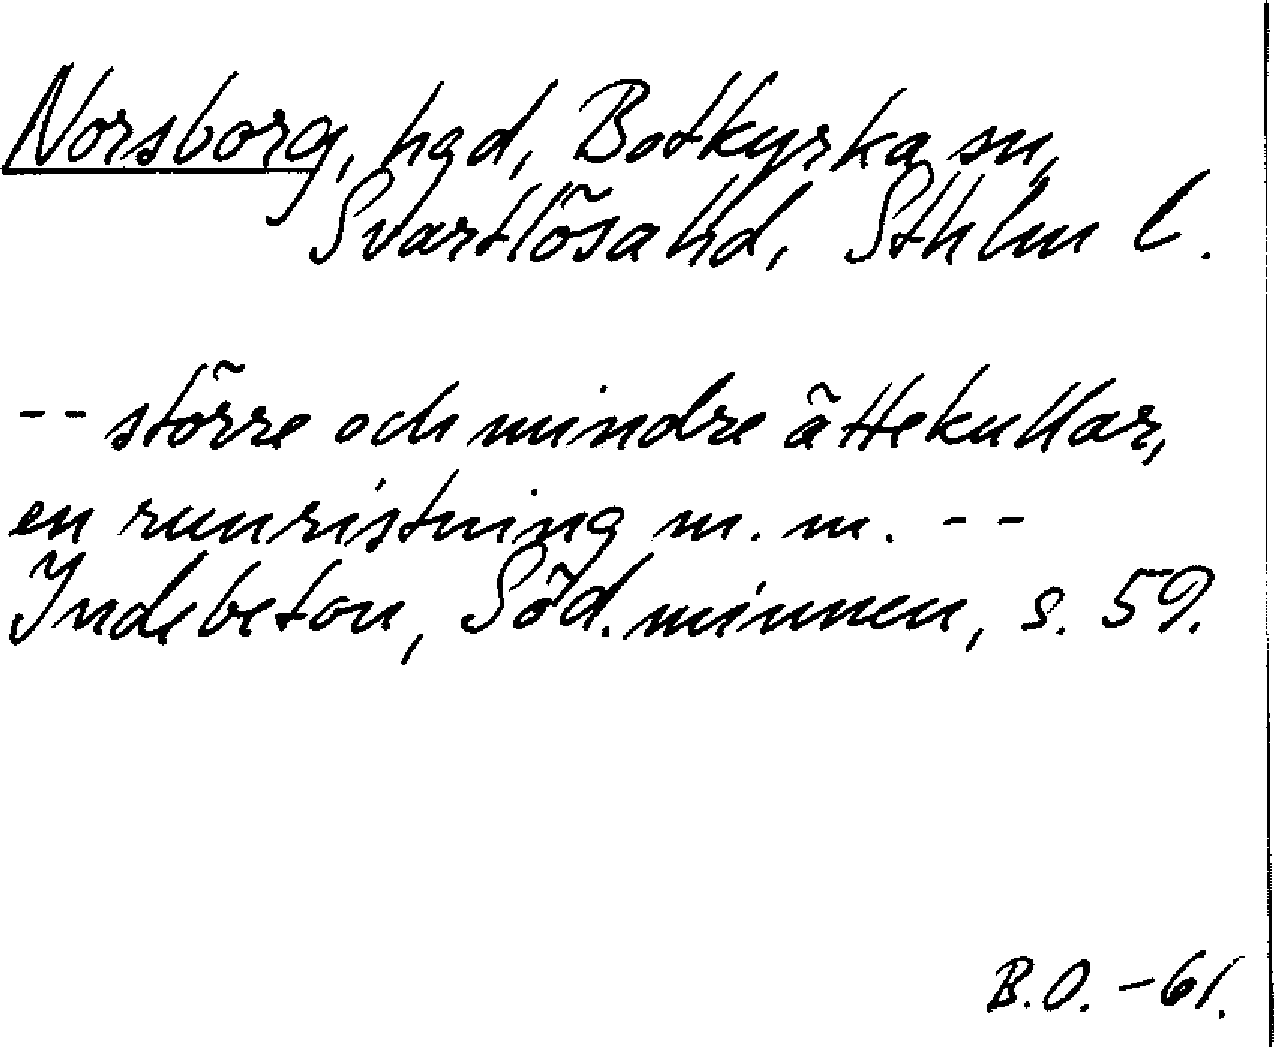 Norsborg, hgd, Botkyrka sn,
Svartlösa hd, Sthlm l.
-- större och mindre ättekullar,
en runristning m. m. --
Indebetou, Söd. minnen, s. 59.
B.O. -61.